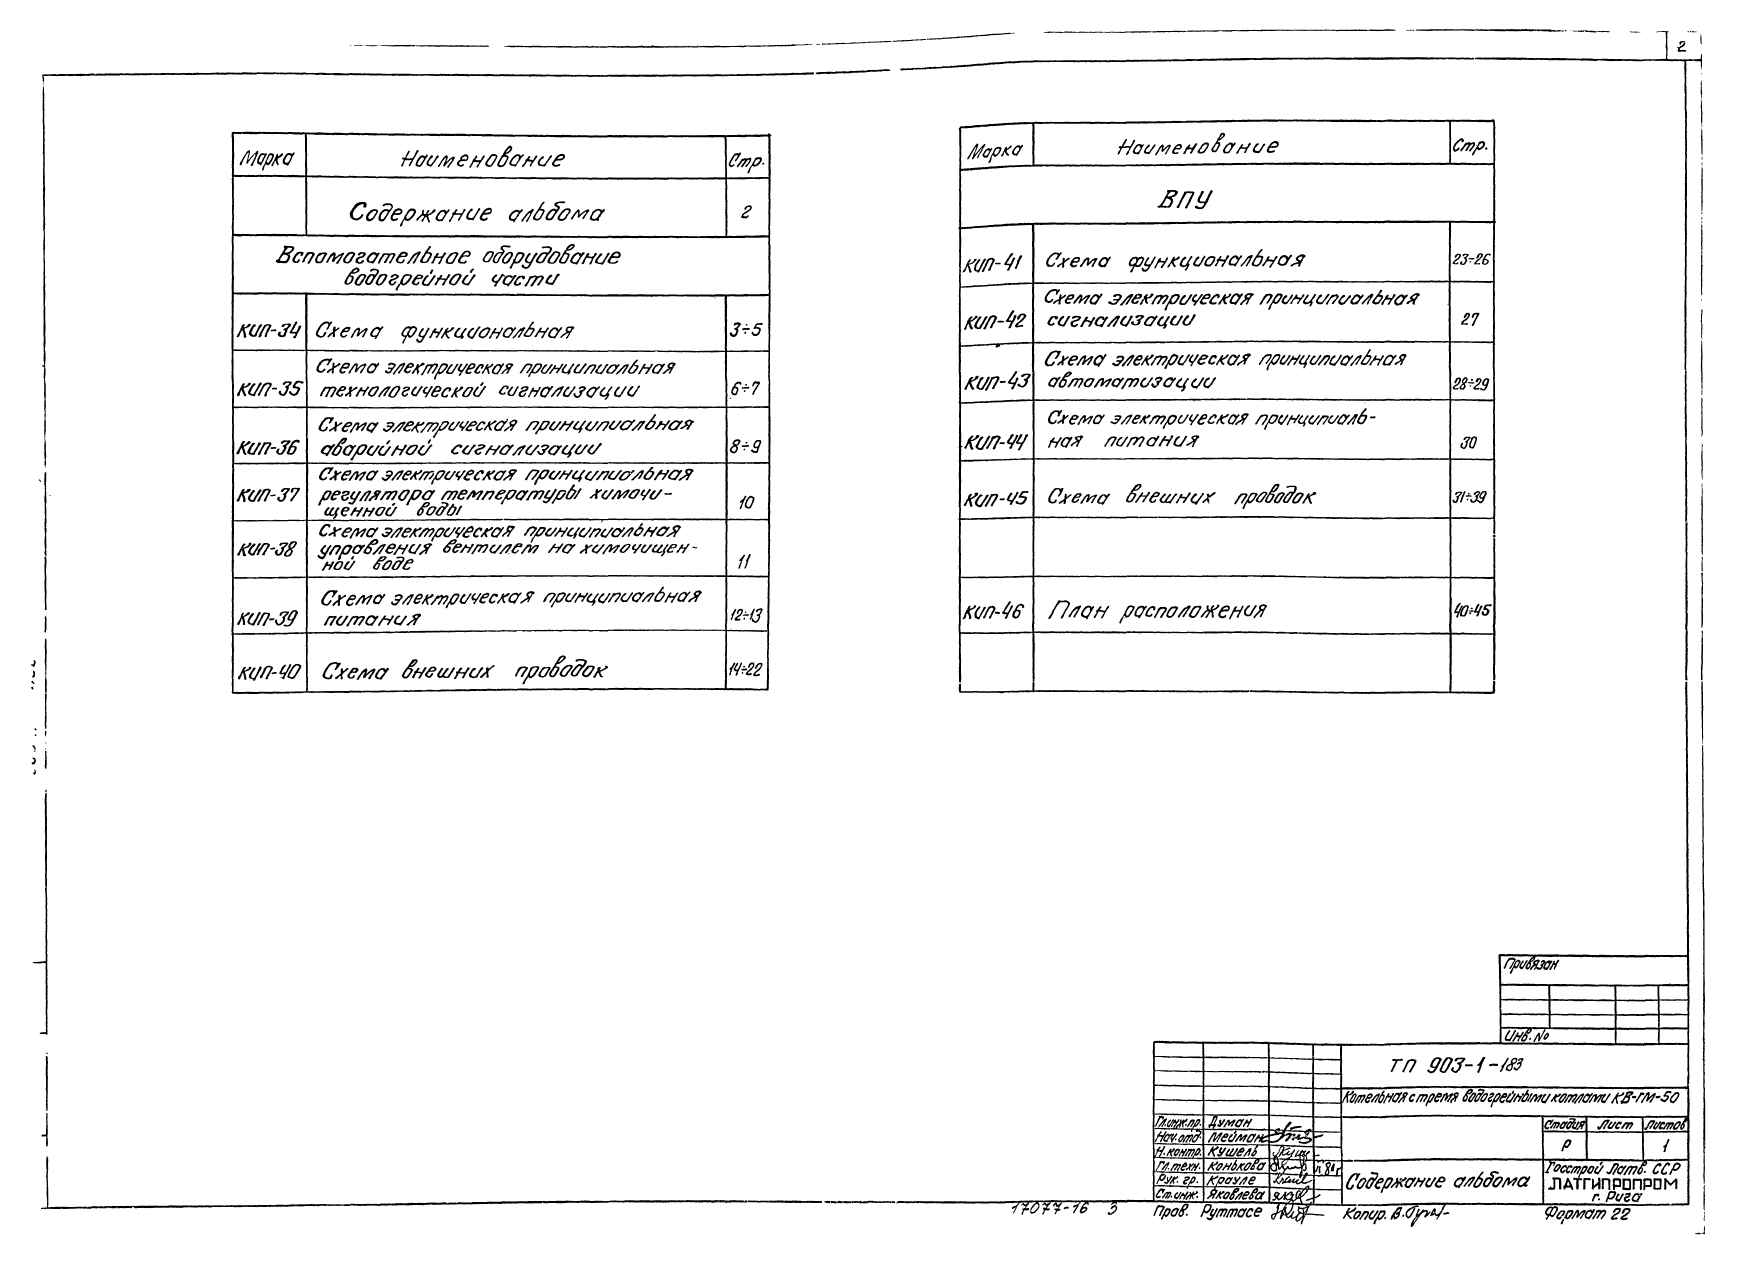 2
Марка Наименование Стр.
Содержание альбома 2
Вспомогательное оборудование
водогрейной части
КИП-34 Схема функциональная 3÷5
Схема электрическая принципиальная
КИП-35 технологической сигнализации 6÷7
Схема электрическая принципиальная
КИП-36 аварийной сигнализации 8÷9
Схема электрическая принципиальная
КИП-37 регулятора температуры химочи-
щенной воды 10
Схема электрическая принципиальная
КИП-38 управления вентилем на химочищен-
ной воде 11
Схема электрическая принципиальная
КИП-39 питания 12÷13
КИП-40 Схема внешних проводок 14÷22
Марка Наименование Стр.
ВПУ
КИП-41 Схема функциональная 23÷26
Схема электрическая принципиальная
КИП-42 сигнализации 27
Схема электрическая принципиальная
КИП-43 автоматизации 28÷29
Схема электрическая принципиаль-
КИП-44 ная питания 30
КИП-45 Схема внешних проводок 31÷39
КИП-46 План расположения 40÷45
Привязан
Инв. №
ТП 903-1-183
Котельная с тремя водогрейными котлами КВ-ГМ-50
Гл.инж.пр. Думан
Нач.отд. Мейман
Н.контр. Кушель
Гл.техн. Конькова
Рук. гр. Крауле
Ст.инж. Яковлева
Стадия Лист Листов
Р 1
Содержание альбома
Госстрой Латв. ССР
ЛАТГИПРОПРОМ
г. Рига
17077-16 3
Пров. Руттасе
Копир. В.
Формат 22